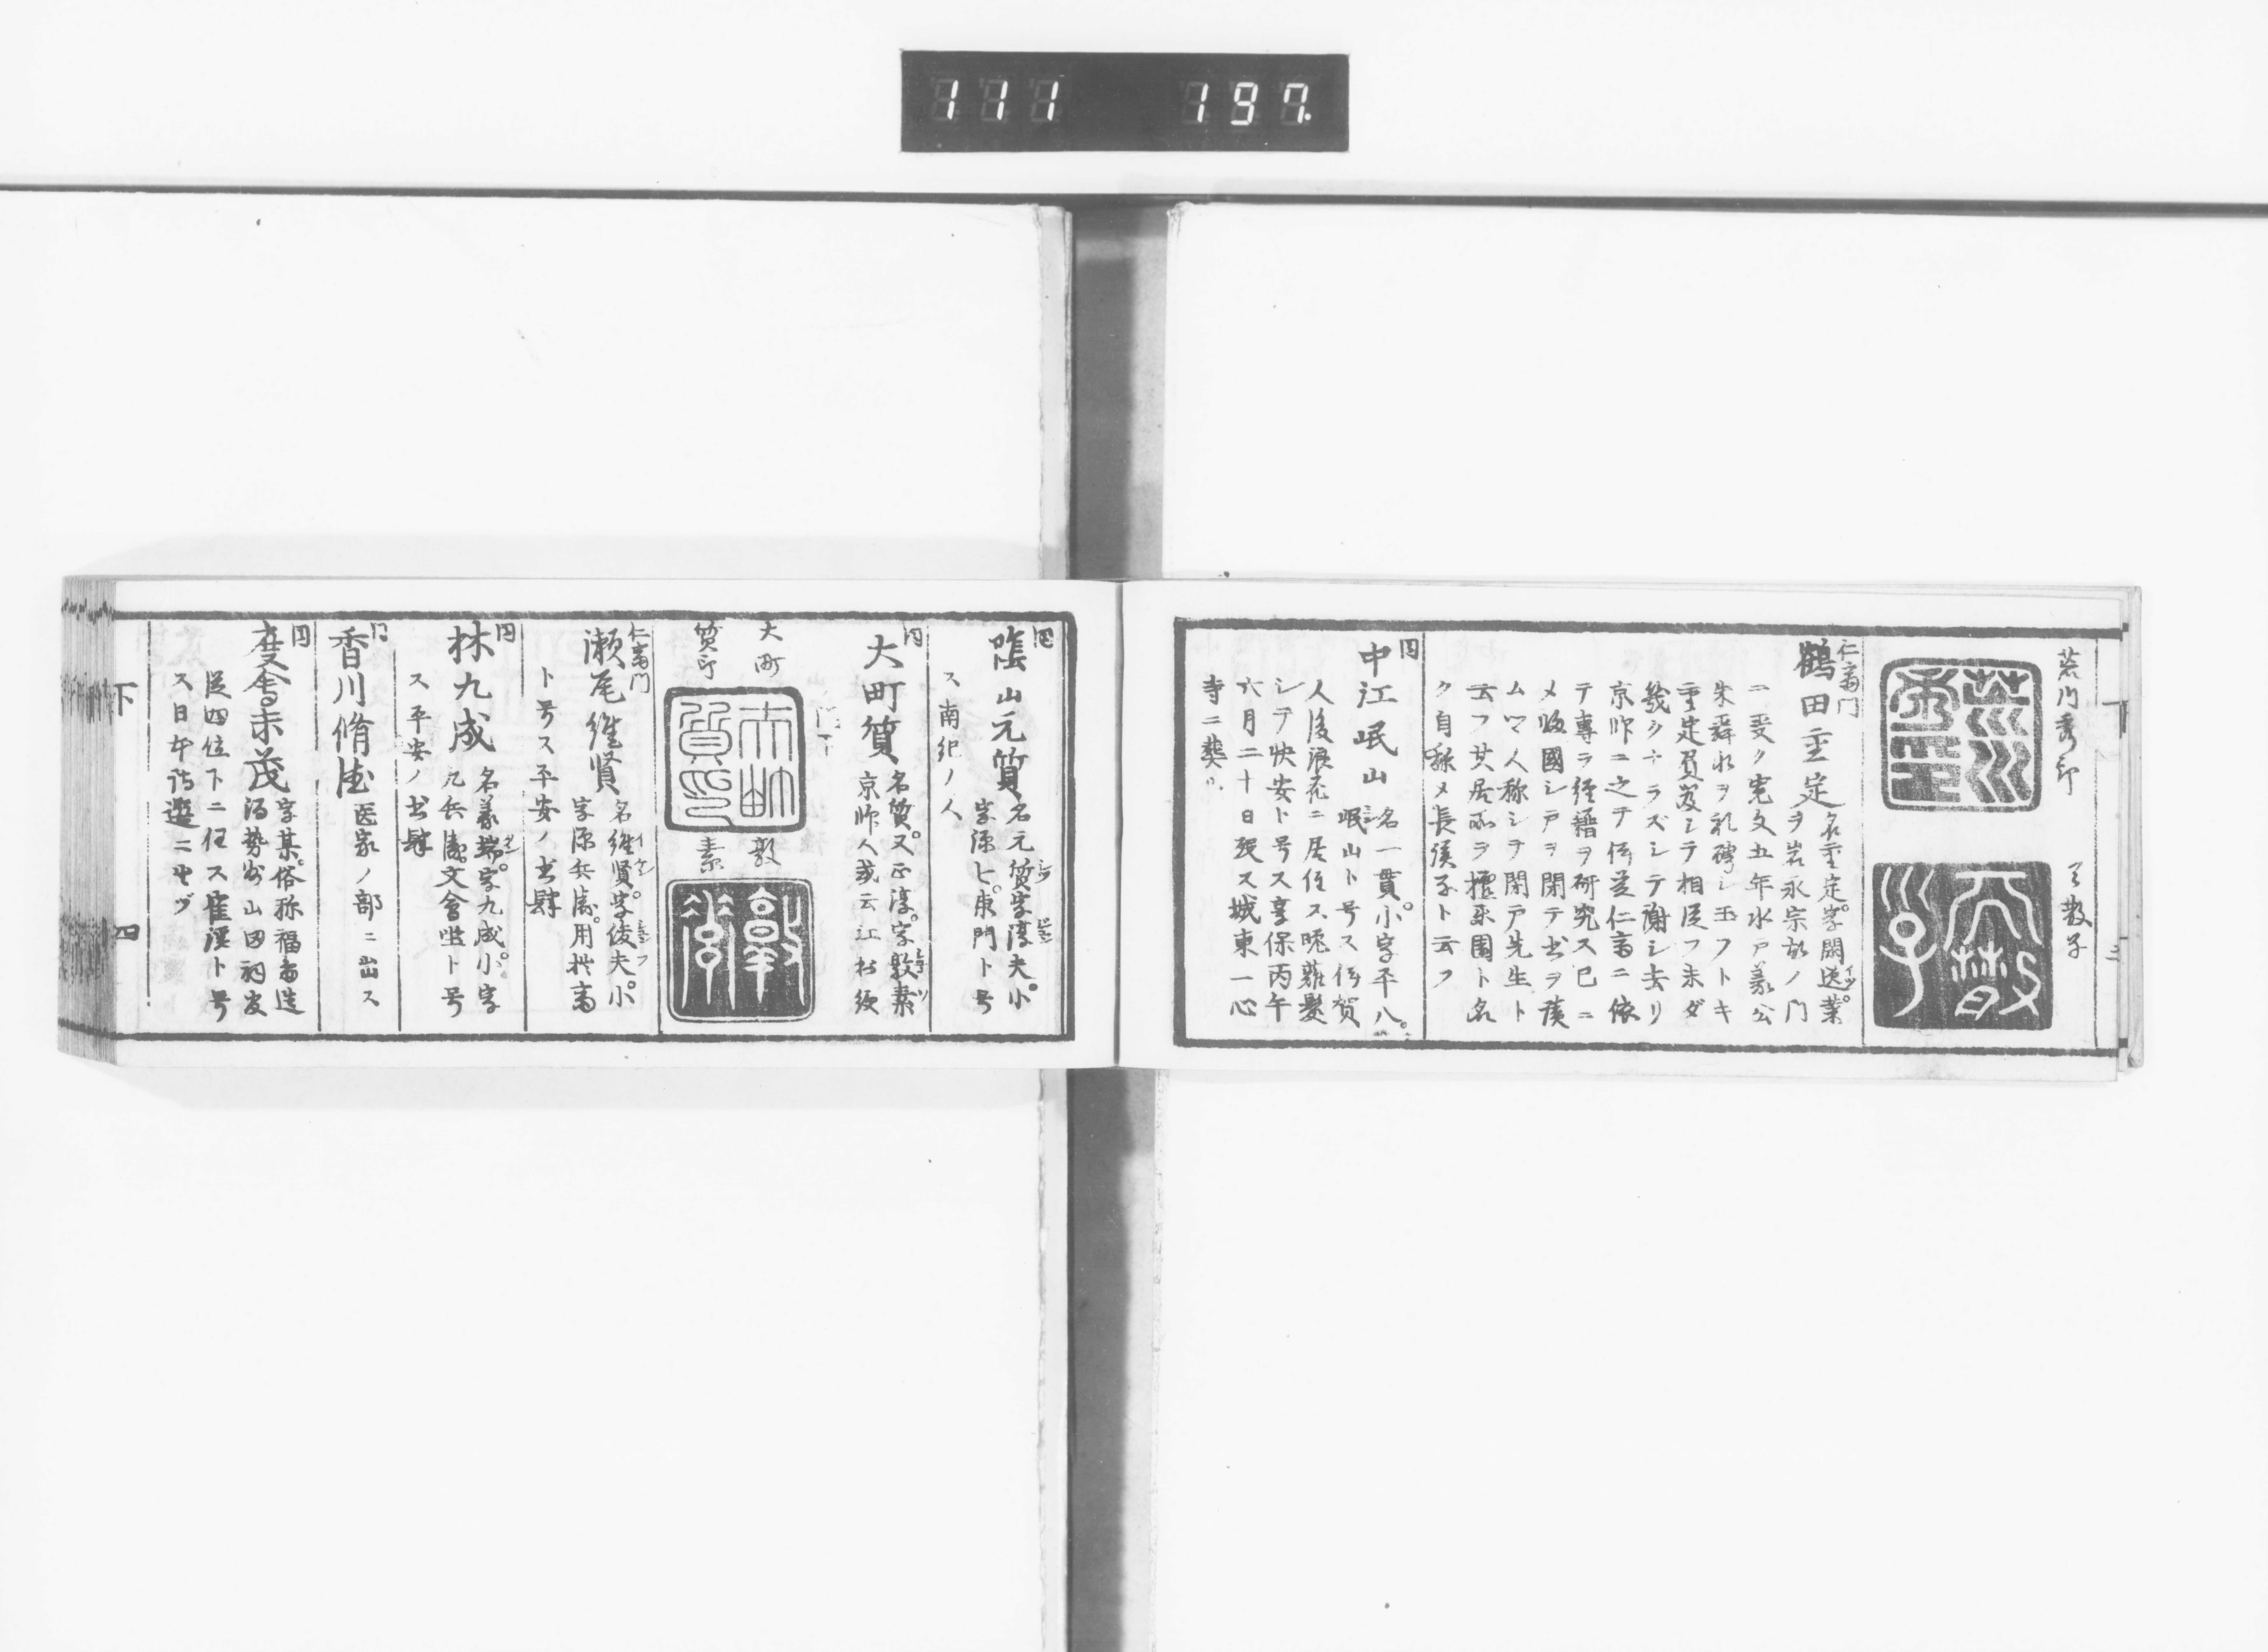 111 197.
荒川秀印
天散子
三
仁斎門
鶴田重定
名重定。字聞遠。業
ヲ岩永宗故ノ門
ニ受ク寛文五年水戸義公
朱舜水ヲ礼聘シ玉フトキ
重定負笈シテ相従フ未ダ
幾クナラズシテ謝シ去リ
京師ニ之キ伊藤仁斎ニ依
テ専ラ経籍ヲ研究ス已ニ
メ皈國シ戸ヲ閉テ書ヲ読
ム人称シテ閉戸先生ト
云フ其居所ヲ
園ト名
ク自稱メ長渓子ト云フ
同
中江岷山
名一貫。小字平八。
岷山ト号ス伊賀
人後浪花ニ居住ス晩薙髪
シテ快安ト号ス享保丙午
六月二十日歿ス城東一心
寺ニ葬ル
同
蔭山元質
名元質字淳夫。小
字源七。東門ト号
ス南紀ノ人
同
大町質
名質。又正淳。字敦素
京師人或云江
大町
質印
敦
素
仁斎門
瀬尾維賢
名維賢。字俊夫。小
字源兵衛。用拙斎
ト号ス平安ノ書肆
同
林九成
名義端。字九成。小字
九兵衛。文會堂ト号
ス平安ノ書肆
同
香川脩徳
医家ノ部ニ出ス
同
度會末茂
字某。俗称福島
勢州山田祠官
従四位下ニ任ス
ト号
ス日本詩選ニ出ヅ
下
四